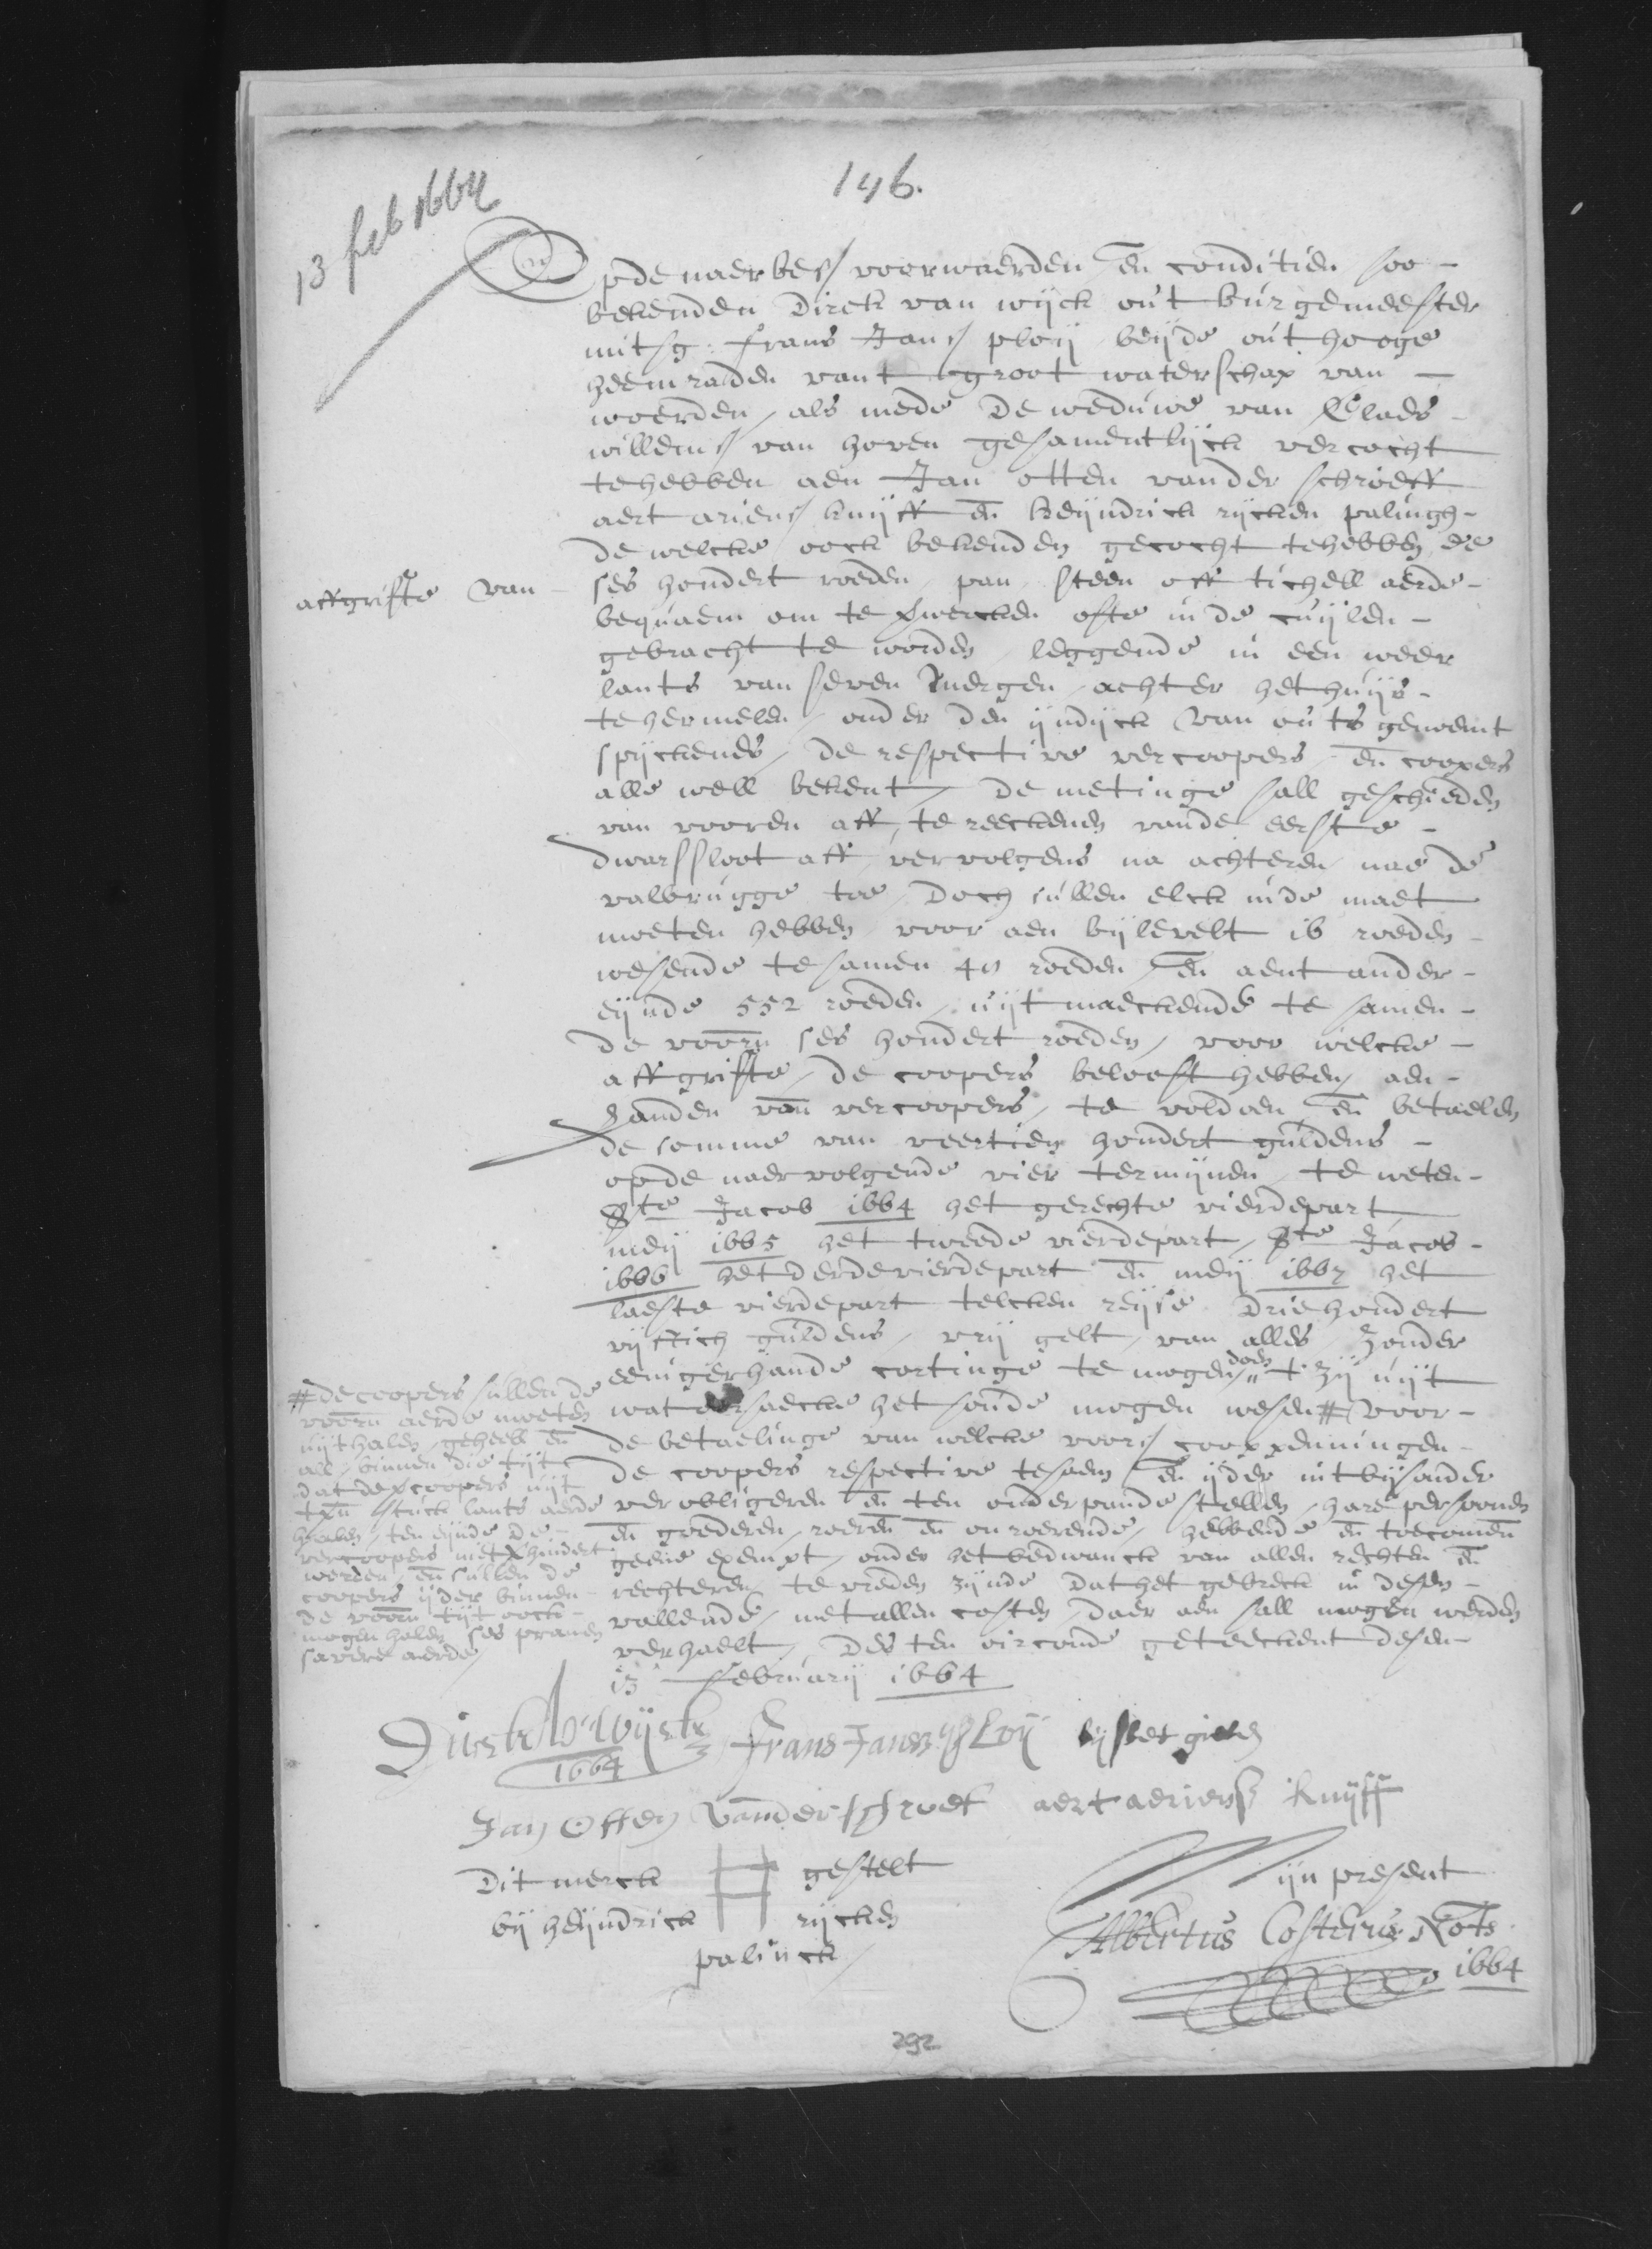 146.
13 feb 1664
Opde naerbes/ voorwaerden en conditien soo -
bekenden Dirck van wijck out burgemeester
mitsg: frans Jans/ ploij beijde out hooge
heemraden vant groot waterschap van -
woerden, als mede De weduwe van Claes -
willems/ van hoven gesamentlijck vercocht
te hebben aen Jan otten vander schroeff
aert ariens/ knijff en heijndrick rijcken palingh -
de welcke oock bekenden gecocht tehebben de
affgrifte van -
ses hondert roeden, pan, steen off tichell aerde -
bequaem om te wercken ofte in de cuijlen -
gebracht te worden, leggende in een weer
lants van seven mergen, achter het huijs -
te hermelen, onder den ijndijck van outs genoemt
spijckens, de respective vercoopers, en coopers
alle well bekent, De metinge sall geschieden
van vooren aff, te reeckenen vande eerste -
dwarssloot aff, vervolgens na achteren, nae de
valbrugge toe, Doch sullen elck inde maet
moeten hebben, voor aen bijlevelt 16 roeden -
wesende te samen 48 roeden, en aent ander -
eijnde 552 roeden, uijtmaeckende te samen -
de voorn ses hondert roeden, voor welcke -
affgrifte, de coopers belooft hebben, aen -
handen van vercoopers, te voldoen, en betaelen
de somme van veertien hondert guldens -
op de naervolgende vier termijnen, te weten -
Ste Jacob 1664 het gerechte vierdepart
meij 1665 het tweede vierdepart, Ste Jacob -
1666 het derde vierdepart en meij 1667 het
laeste vierdepart telcken reijse Driehondert
vijftich guldens, vrij gelt, van alles, zonder
eenigerhande cortinge te mogen doen t zij uijt
wat oorsaecke het soude mogen wesen # Voor -
de betaelinge van welcke voors/ cooppenningen -
de coopers respective tesaem en ijder int bijsonder
verobligeren en ten onderpande stellen, hare persoonen
en goederen, roeren en onroerende, hebbende en toecomen
geene exempt, onder het bedwanck van allen rechten en
rechteren, te vreden zijnde Dat het gebreck in desen -
vallende, met allen costen, daer aen sall mogen werden
verhaelt, Des ten oirconde geteeckent desen -
13 februarij 1664
# De coopers sullen de
voorn aerde moeten
uijthalen, geheel en
all, binnen die tijt
dat de vercoopers uijt
stuck lants aerde
haelen, ten eijnde de -
vercoopers niet verhindert
werden, en sullen de
coopers ijder binnen -
de voorn tijt oock -
mogen halen ses pramen
savel aerde/
Dirck v. Wijck
1664
Frans Jansz ploij
lijsbet gielen
Jan Otten Vander schroef
aert aeriensz Knijff
Dit merck gestelt
bij heijndrick rijcken
palinck/
Mij present
Albertus Costerus Nots
1664
292